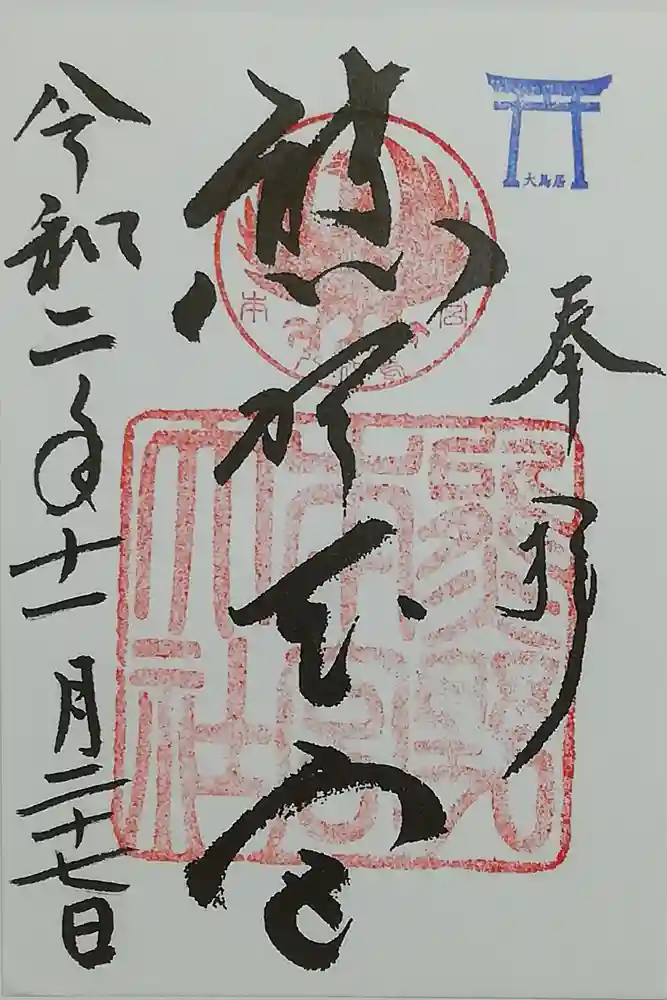 大鳥居
奉拝
熊野本宮
熊野
本宮
大社
令和二年十一月二十七日